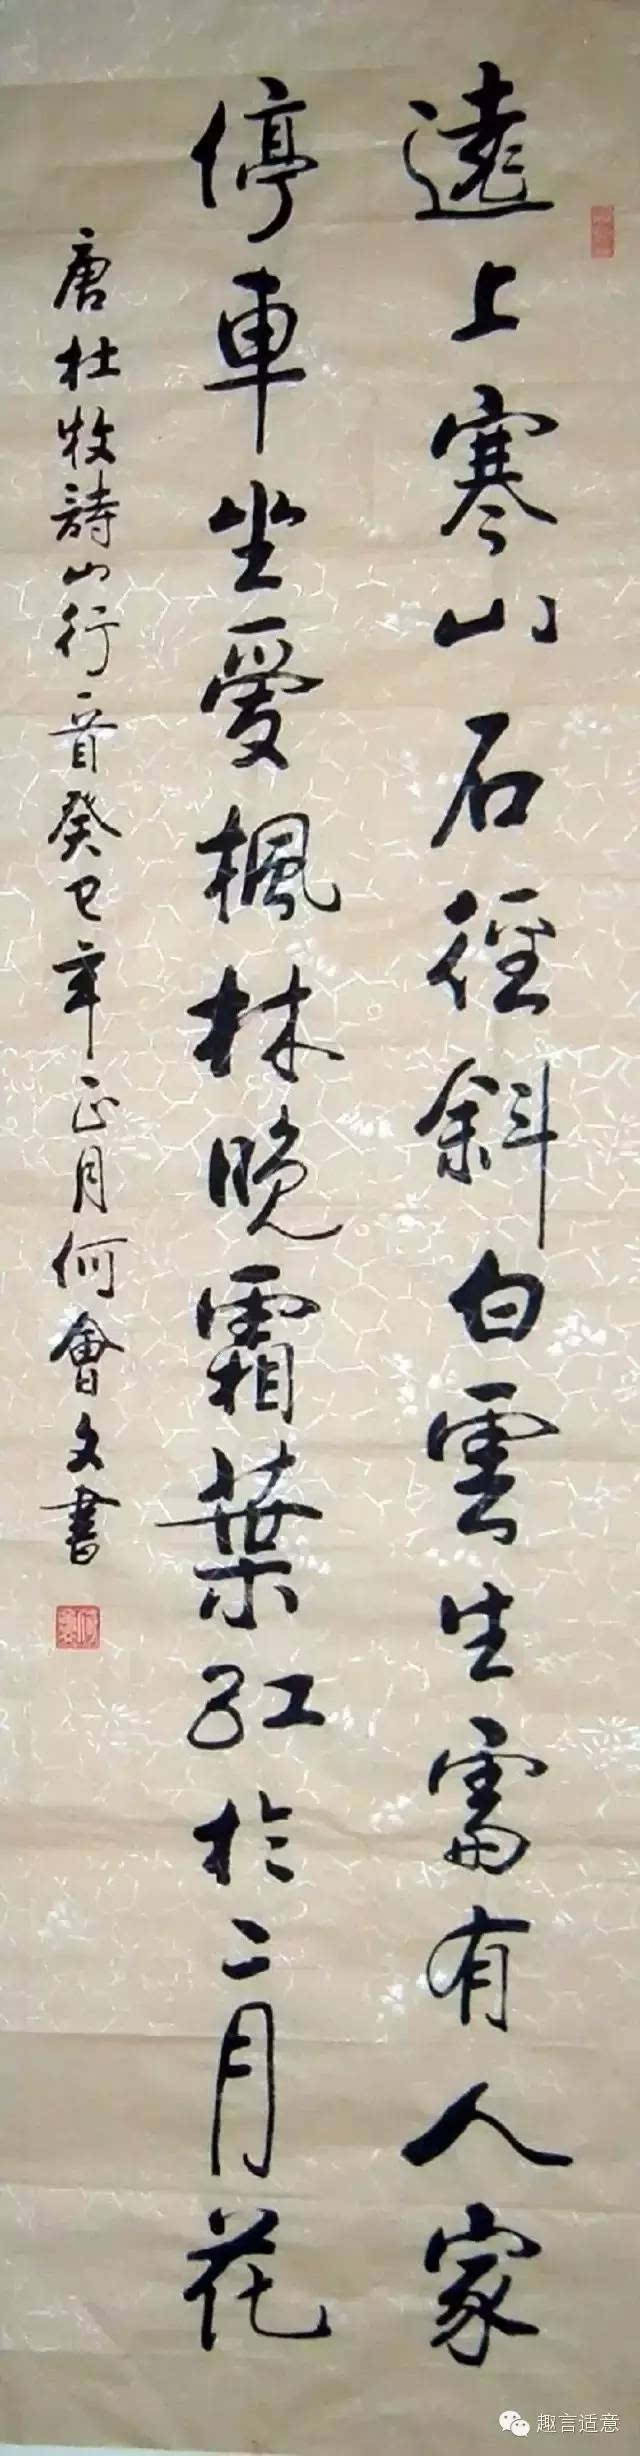 遠上寒山石徑斜白雲生處有人家
停車坐愛楓林晚霜葉紅於二月花
唐杜牧詩山行一首癸巳年正月何會文書
趣言适意